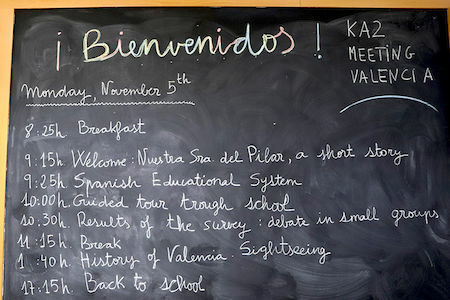 ¡Bienvenidos!
KA2
MEETING
VALENCIA
Monday, November 5th
8:25h. Breakfast
9:15h. Welcome: Nuestra Sra. del Pilar, a short story
9:25h Spanish Educational System
10:00h. Guided tour trough school
10:30h. Results of the survey: debate in small groups
11:15h. Break
1 :40h. History of Valencia. Sightseeing
17:15h. Back to school